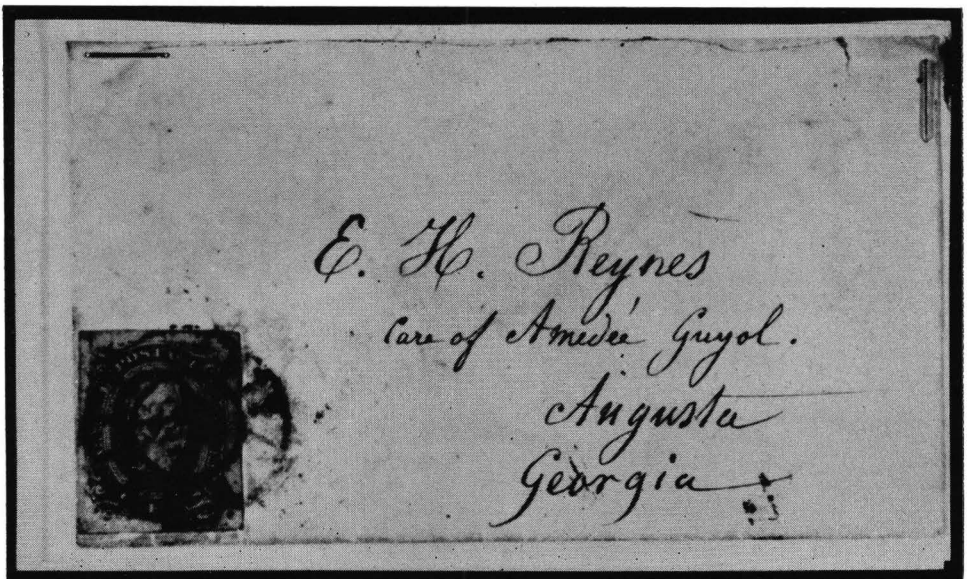 E. H. Reynes
Care of Amedée Guyol.
Augusta
Georgia
POSTAGE